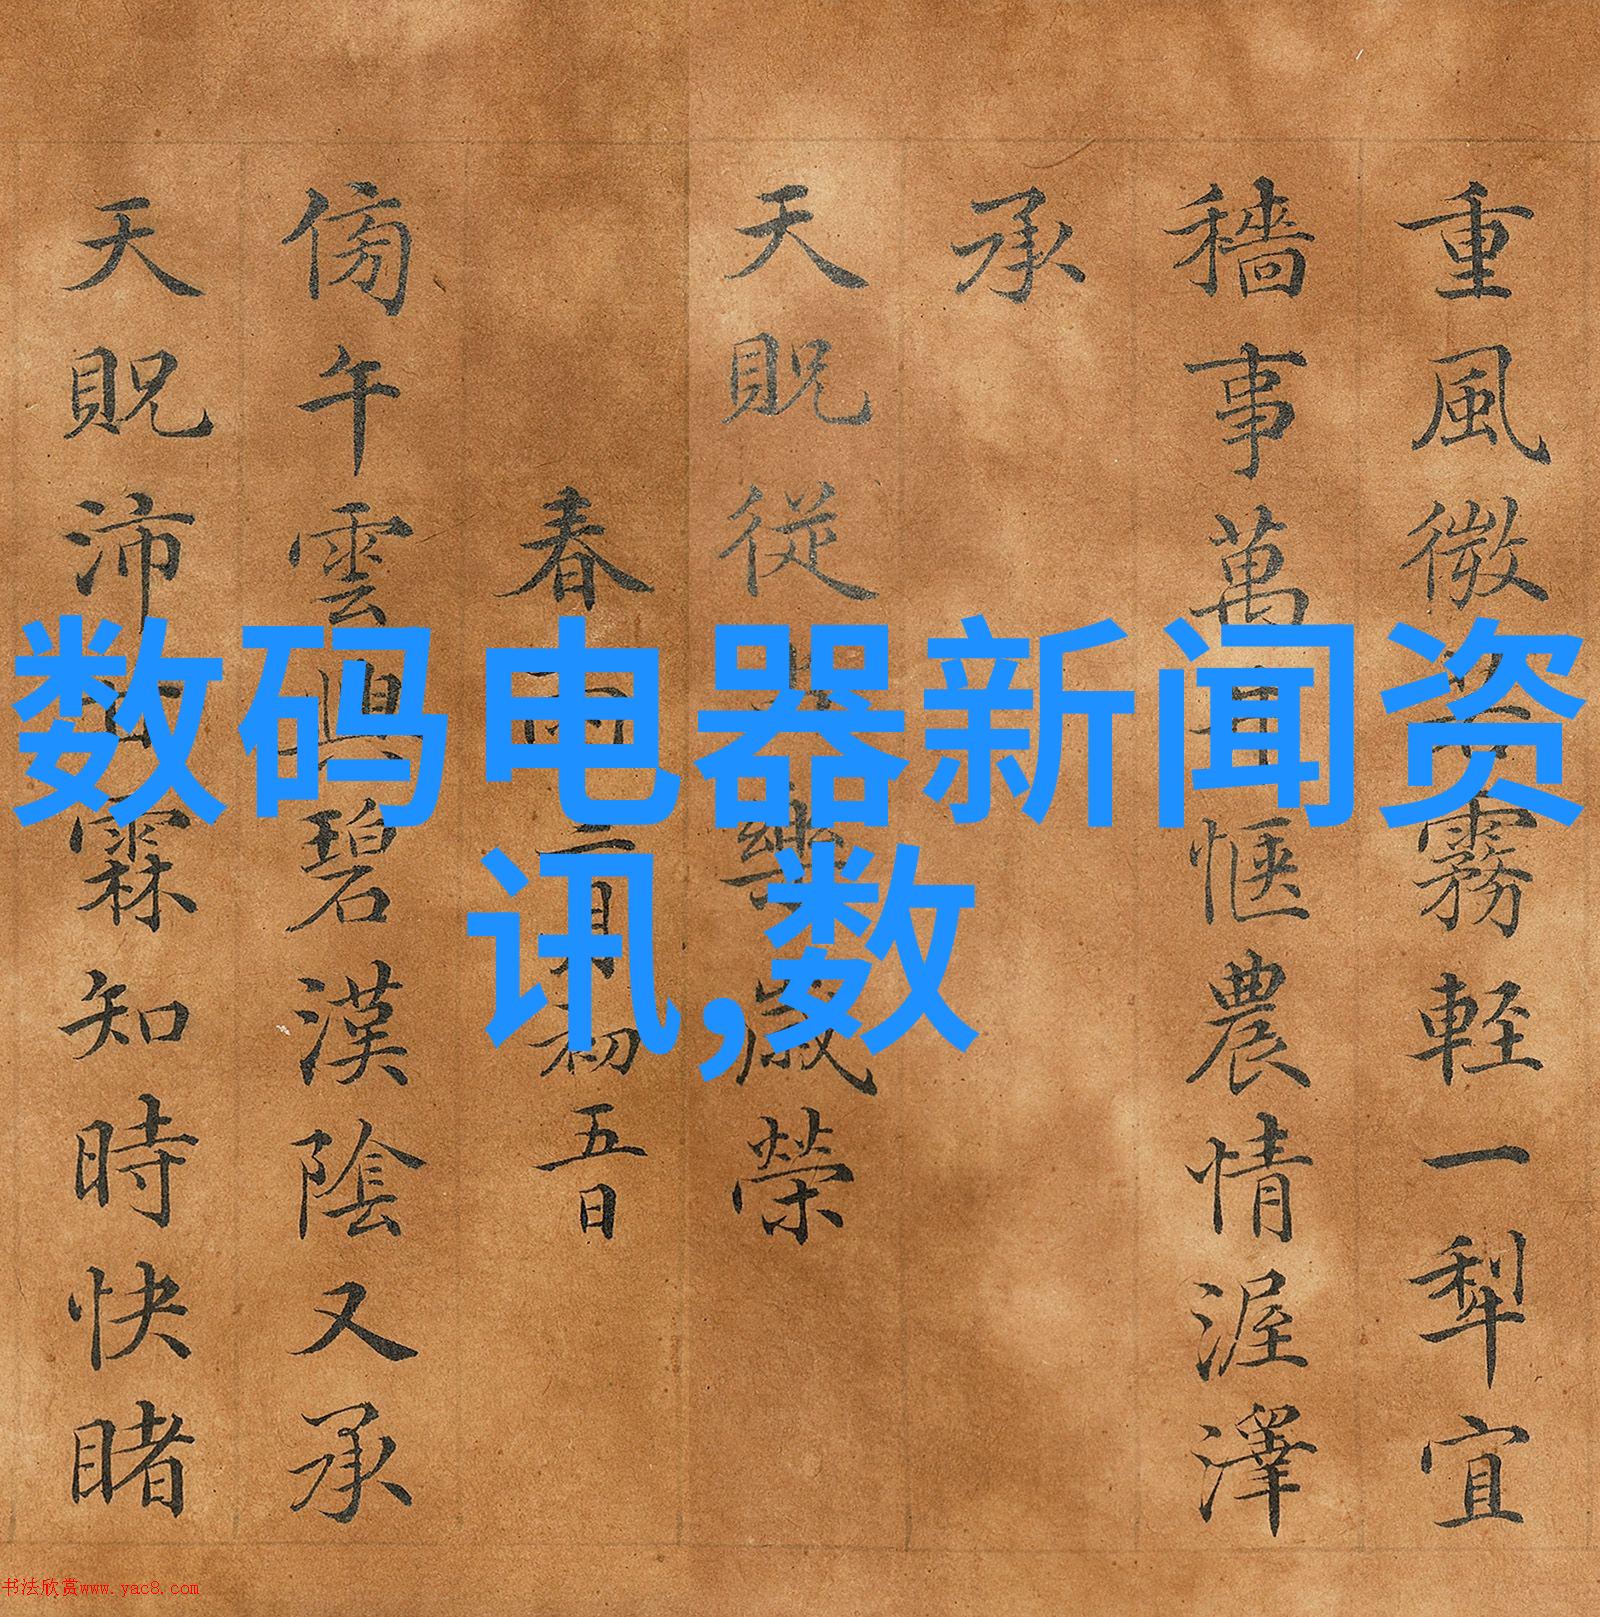 数码电器新闻资
讯,数
重風微霧輕一犁宜
穡事萬愜農情渥澤
承
天貺從樂歲榮
春雨月初五日
傍午雲興碧漢陰又承
天貺沛霖知時快睹
书法欣赏www.yac8.com